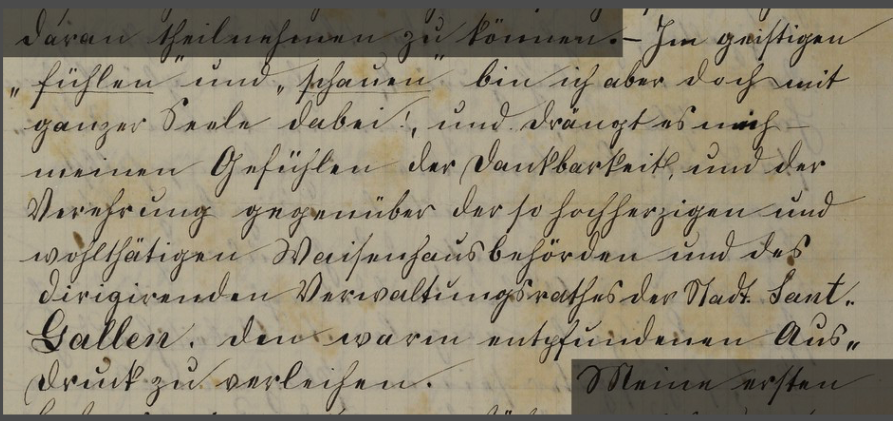 daran theilnehmen zu können. – Im geistigen
„fühlen" und „schauen" bin ich aber doch mit
ganzer Seele dabei!, und drängt es mich –
meinen Gefühlen der Dankbarkeit, und der
Verehrung gegenüber der so hochherzigen und
wohlthätigen Waisenhausbehörden und des
dirigirenden Verwaltungsrathes der Stadt Sant-
Gallen, den warm entpfundenen Aus„
druck zu verleihen.  Meine ersten